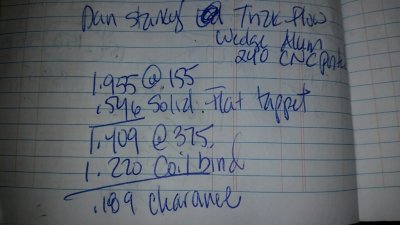 Dan Starkey @ Trick Flow
Wedge Alum
240 CNC ports
1.955 @ 155
.546 Solid. Flat tappet
1.409 @ 375.
1.220 Coil bind
.189 clearance